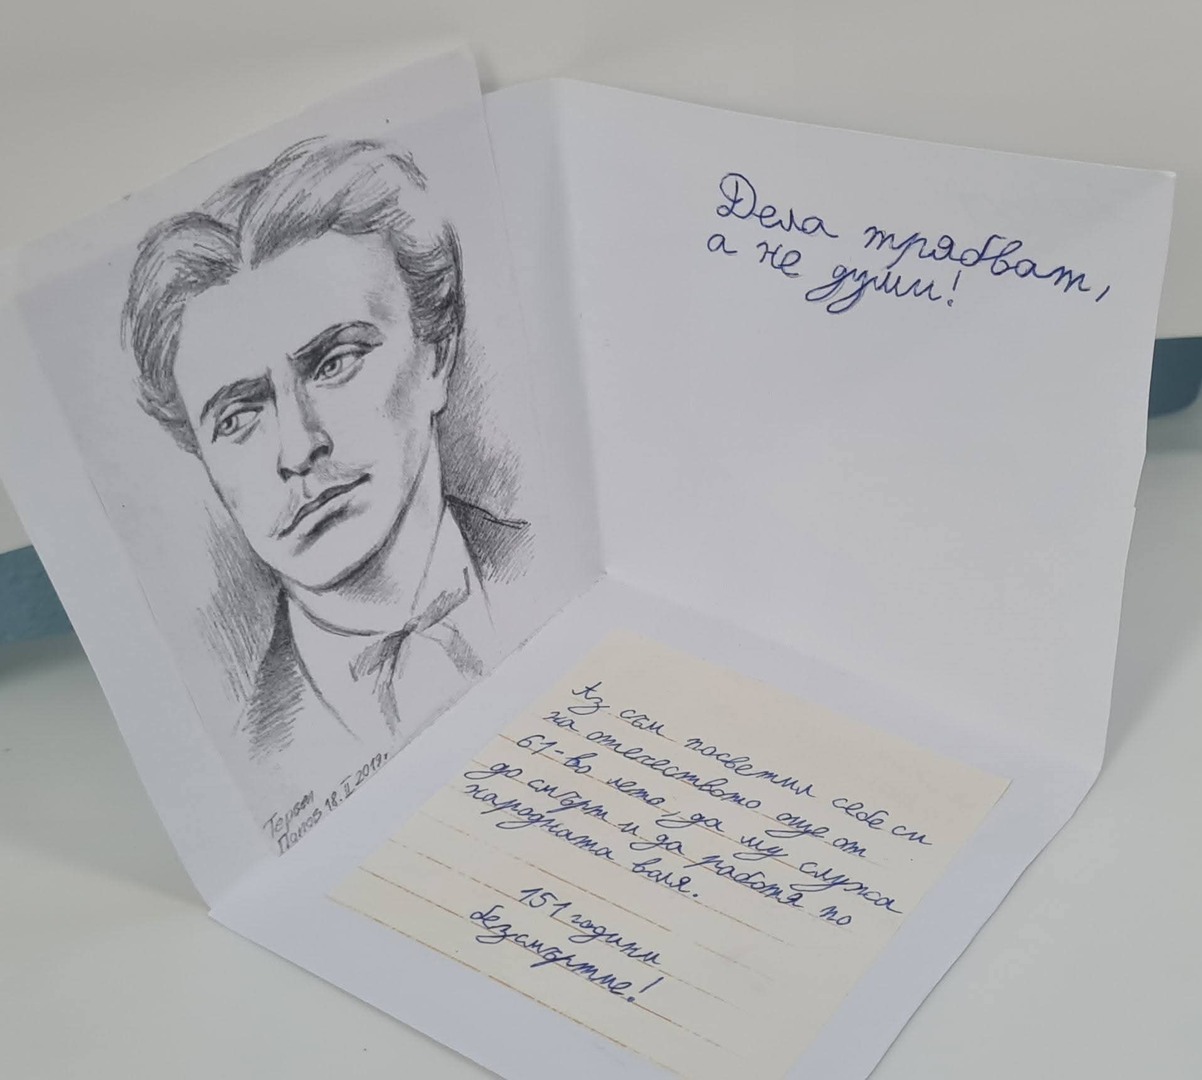 Дела трябват,
а не думи!
Аз съм посветил себе си
на отечеството още от
61-во лето, да му служа
до смърт и да работя по
народната воля.
151 години
безсмъртие!
Тервел
Попов 18.II.2017г.